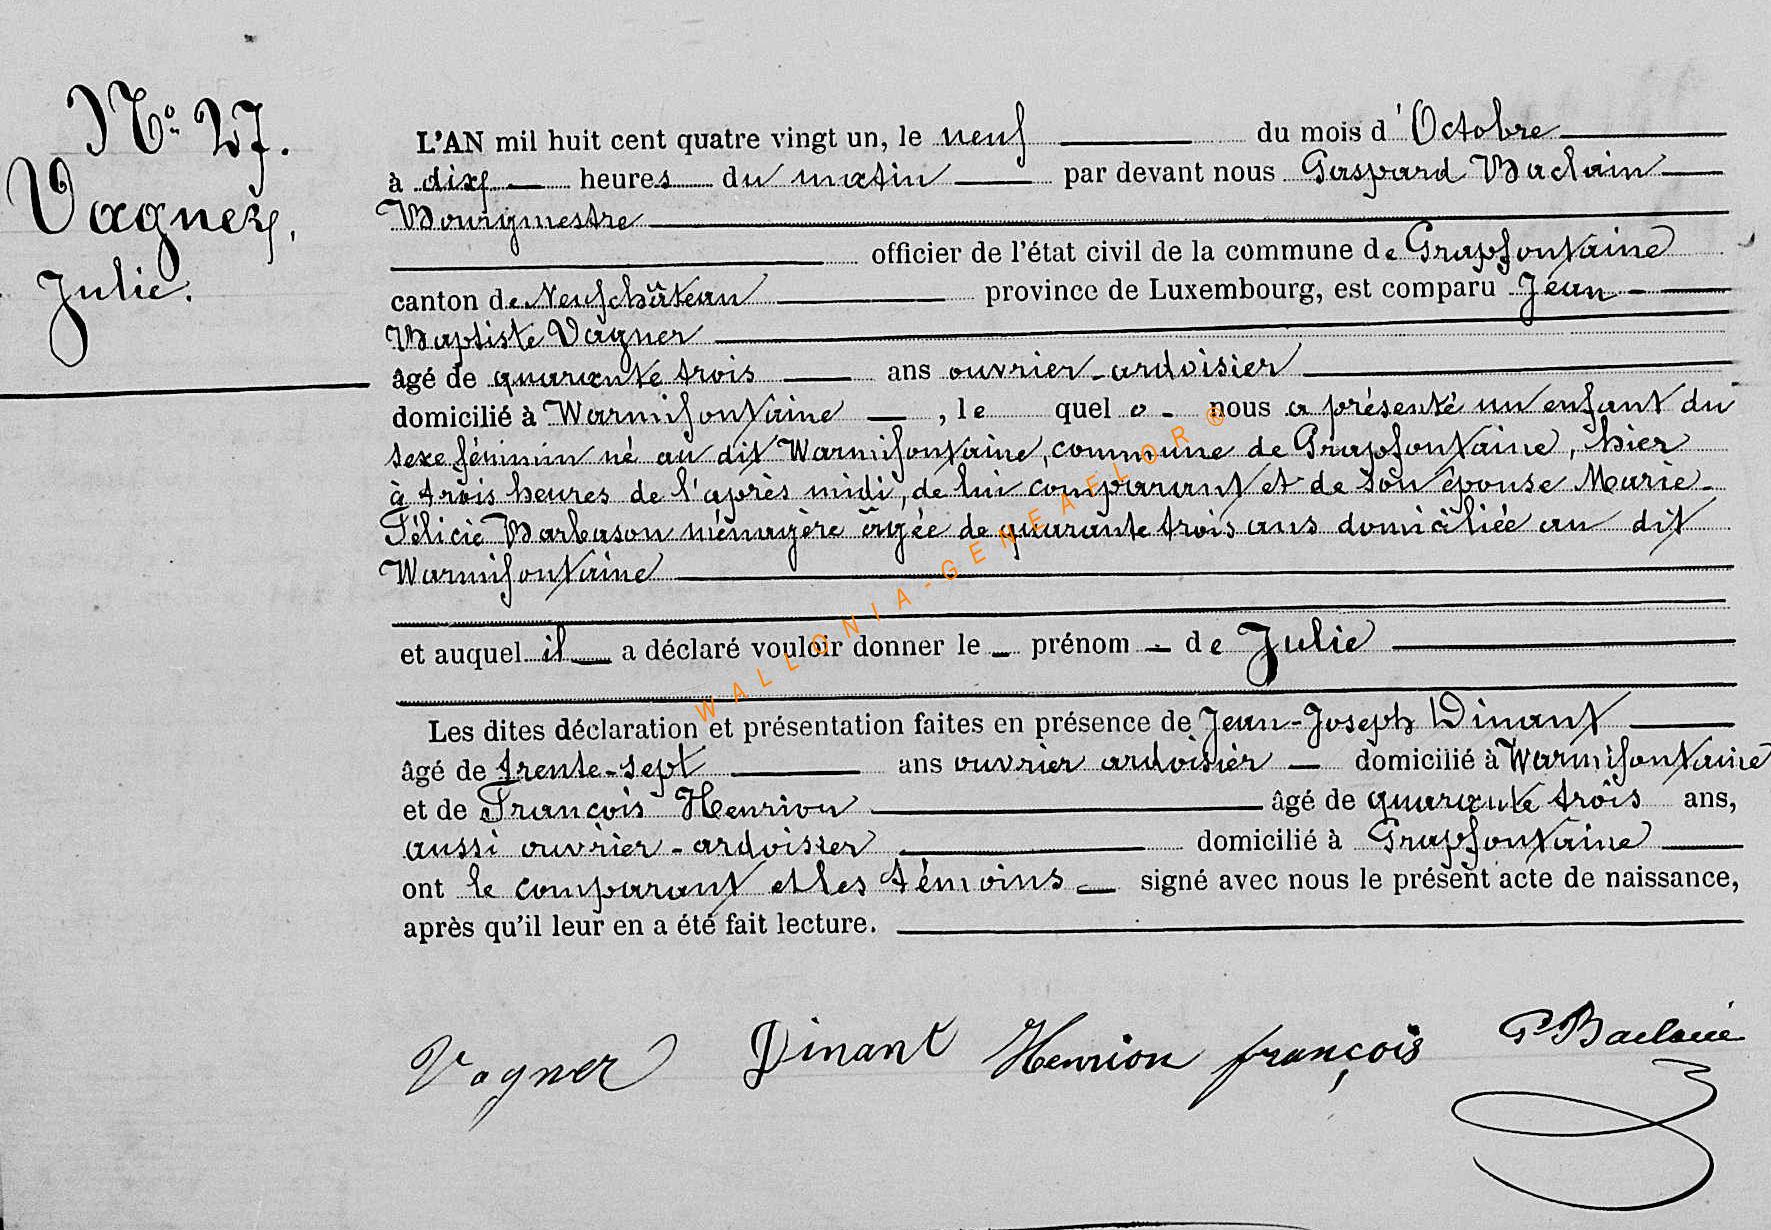 N.º 27.
Vagner,
Julie.
L'AN mil huit cent quatre vingt un, le neuf du mois d'Octobre
à dix heures du matin par devant nous Gaspard Baclain
Bourgmestre
officier de l'état civil de la commune de Grapfontaine
canton de Neufchâteau province de Luxembourg, est comparu Jean
Baptiste Vagner
âgé de quarante trois ans ouvrier-ardoisier
domicilié à Warmifontaine, le quel nous a présenté un enfant du
sexe féminin né au dit Warmifontaine, commune de Grapfontaine, hier
à trois heures de l'après midi, de lui comparant et de son épouse Marie-
Félicie Barbason ménagère âgée de quarante trois ans domiciliée au dit
Warmifontaine
et auquel il a déclaré vouloir donner le prénom de Julie
Les dites déclaration et présentation faites en présence de Jean-Joseph Dinant
âgé de trente-sept ans ouvrier ardoisier domicilié à Warmifontaine
et de François Henrion âgé de quarante trois ans,
aussi ouvrier-ardoisier domicilié à Grapfontaine
ont le comparant et les témoins signé avec nous le présent acte de naissance,
après qu'il leur en a été fait lecture.
Vagner Dinant Henrion françois
WALLONIA-GENEAELOR ®